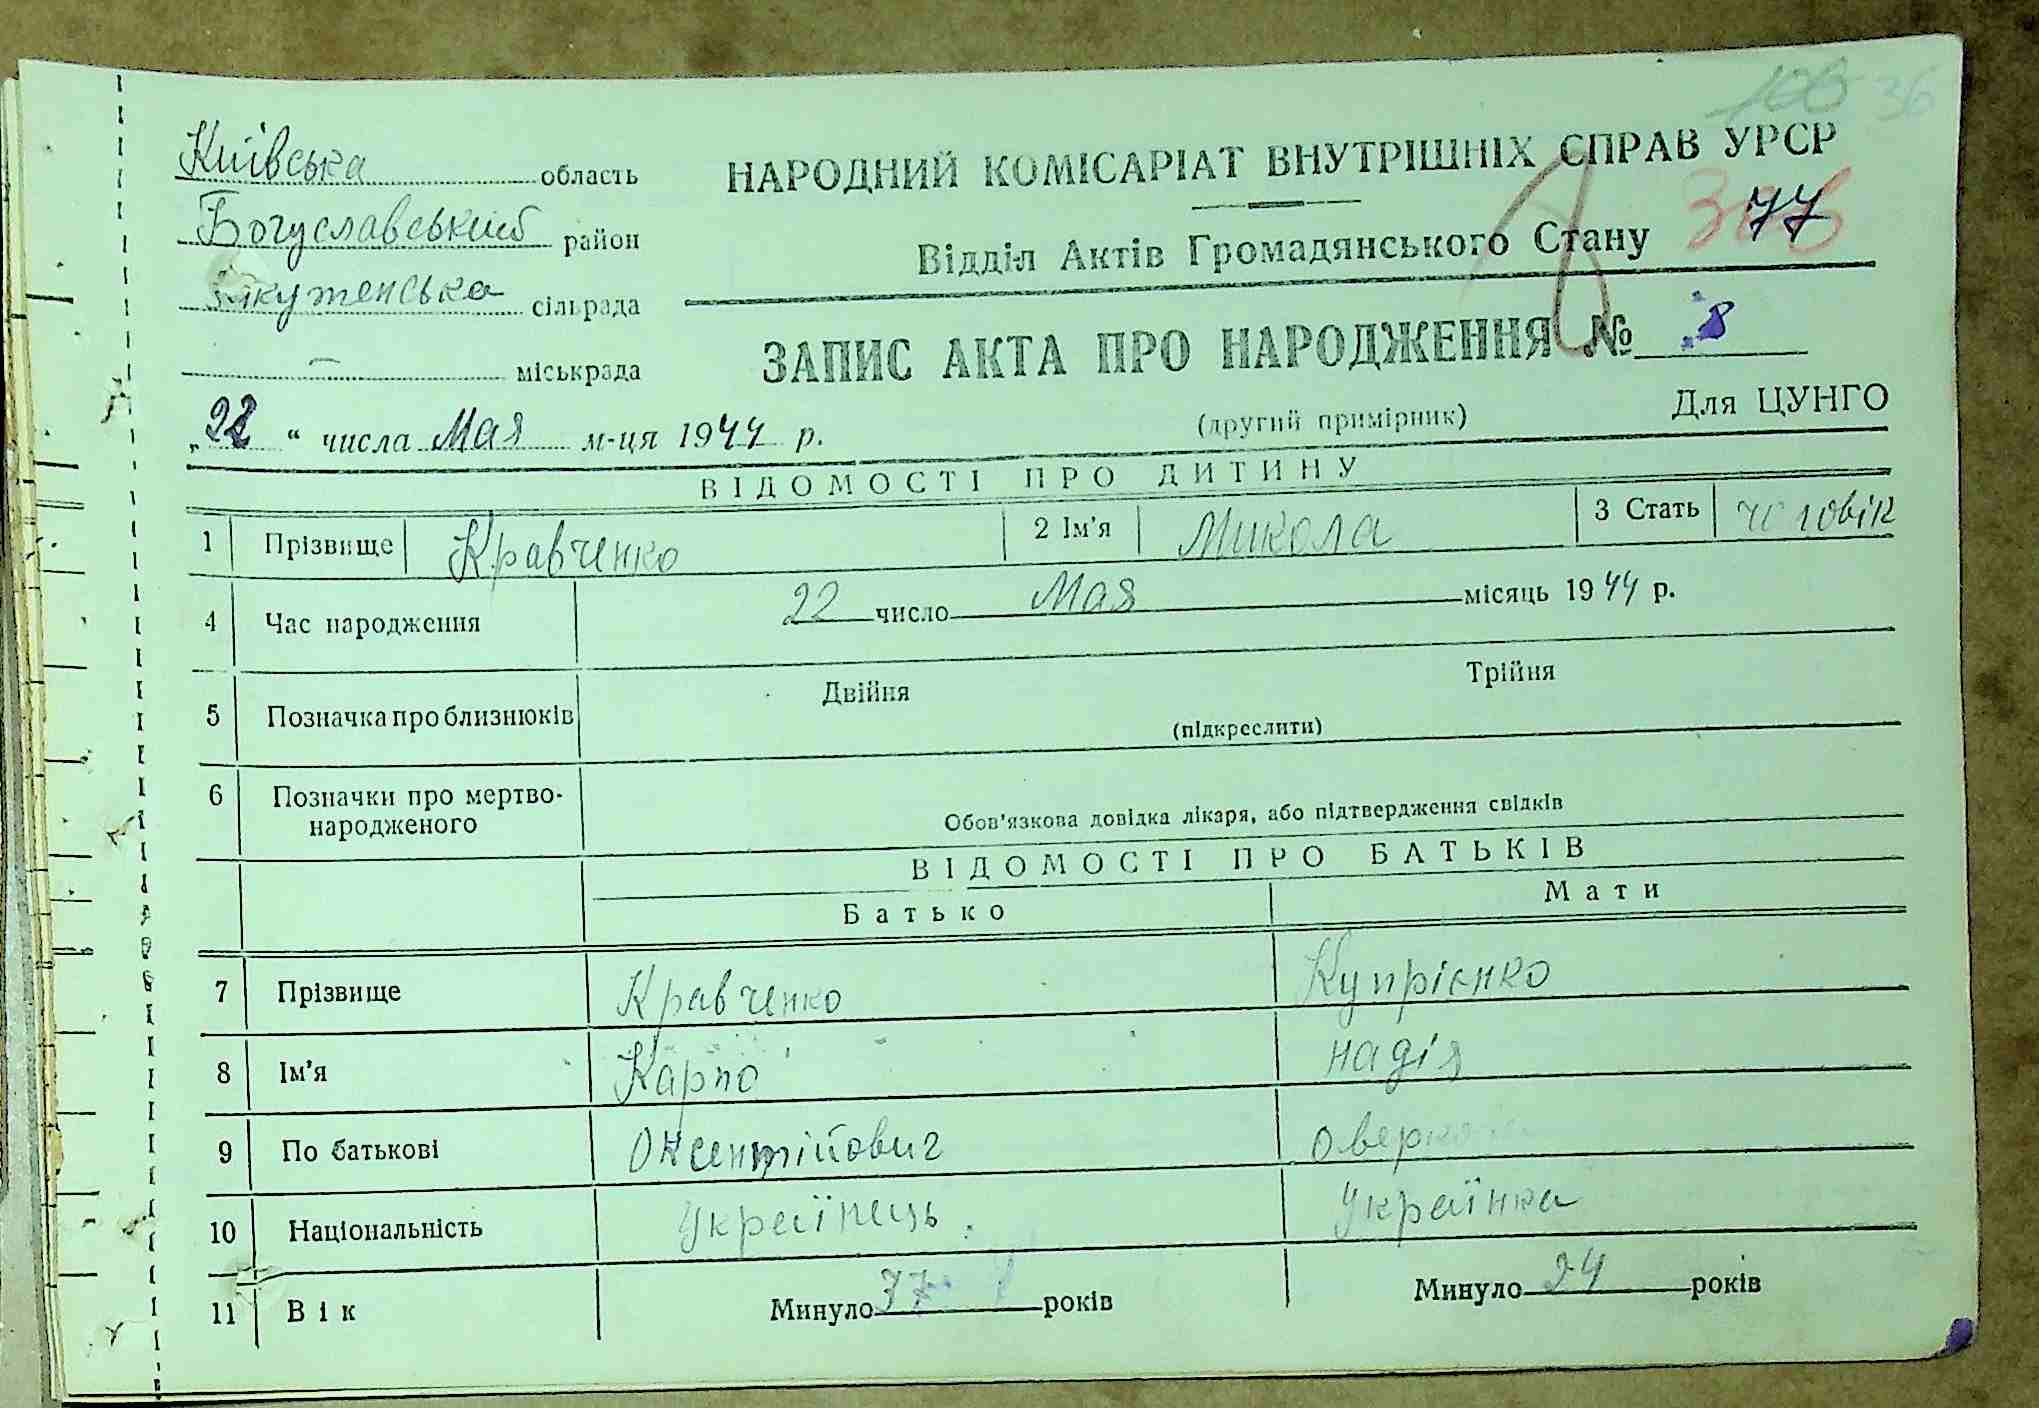 36
Київська область
НАРОДНИЙ КОМІСАРІАТ ВНУТРІШНІХ СПРАВ УРСР
Богуславський район
Відділ Актів Громадянського Стану 77
сільрада
ЗАПИС АКТА ПРО НАРОДЖЕННЯ № 8
міськрада
„22“ числа Мая м-ця 1944 р.
(другий примірник)
Для ЦУНГО
ВІДОМОСТІ ПРО ДИТИНУ
1 Прізвище Кравченко 2 Ім'я Микола 3 Стать чоловік
4 Час народження 22 число Мая місяць 1944 р.
5 Позначка про близнюків Двійня Трійня
(підкреслити)
6 Позначки про мертво-
народженого
Обов'язкова довідка лікаря, або підтвердження свідків
ВІДОМОСТІ ПРО БАТЬКІВ
Батько Мати
7 Прізвище Кравченко Купрієнко
8 Ім'я Карпо Надія
9 По батькові Оксентійович
10 Національність Українець Українка
11 Вік Минуло років Минуло 24 років